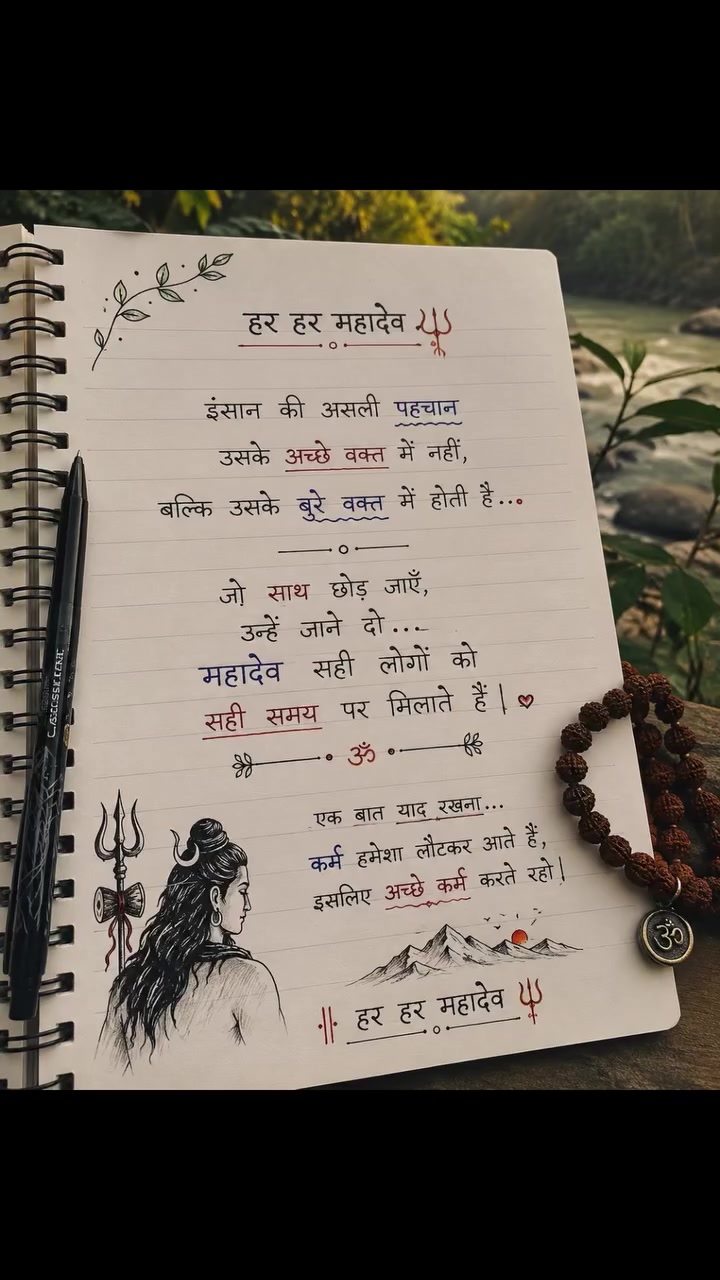 हर हर महादेव
इंसान की असली पहचान
उसके अच्छे वक्त में नहीं,
बल्कि उसके बुरे वक्त में होती है...
जो साथ छोड़ जाएँ,
उन्हें जाने दो...
महादेव सही लोगों को
सही समय पर मिलाते हैं|
ॐ
एक बात याद रखना...
कर्म हमेशा लौटकर आते हैं,
इसलिए अच्छे कर्म करते रहो|
|| हर हर महादेव
ॐ